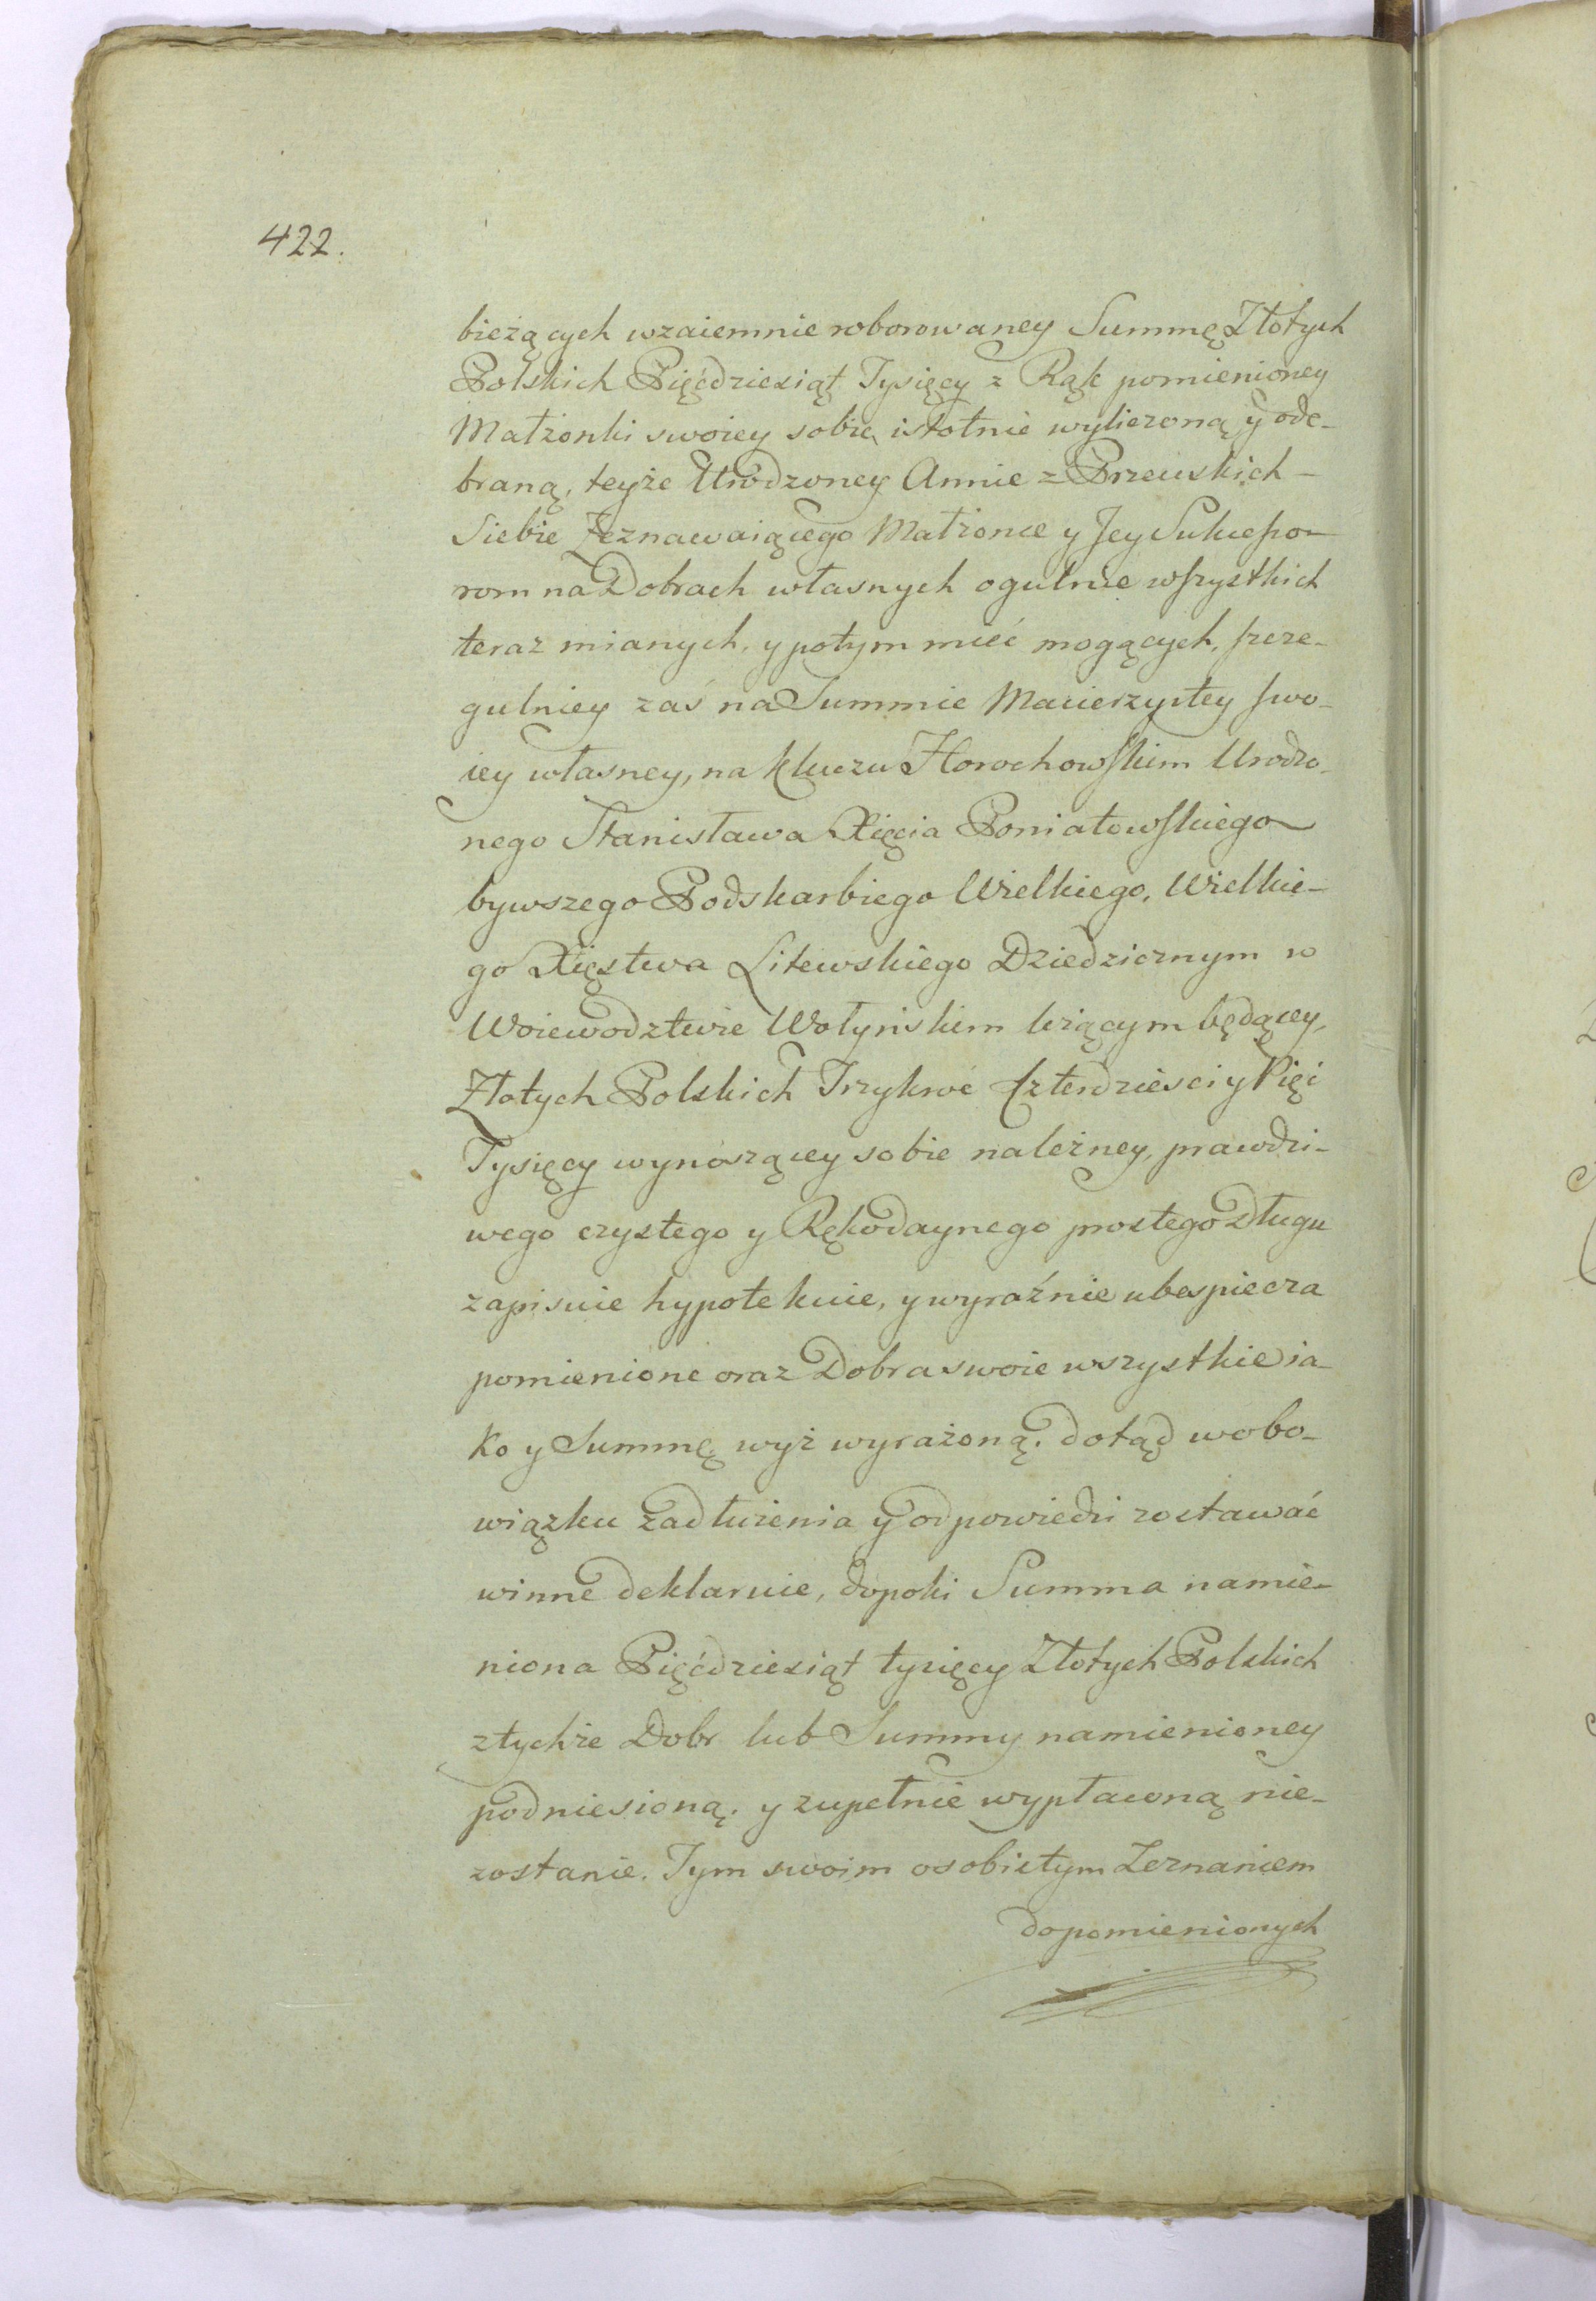 422.
bieżących wzaiemnie roborowaney Summę Złotych
Polskich Pięćdziesiąt Tysięcy z Rąk pomienioney
Małżonki swoiey sobie istotnie wyliczoną y ode-
braną, teyże Urodzoney Annie z Przeuskich -
Siebie Zeznawaiącego Małżonce y Jey Sukcesso-
rom na Dobrach własnych ogulnie wszystkich
teraz mianych, y potym mieć mogących, szcze-
gulniey zaś na Summie Macierzystey swo-
iey własney, na kluczu Horochowskim Urodzo-
nego Stanisława Xięcia Poniatowskiego
bywszego Podskarbiego Wielkiego, Wielkie-
go Xięstwa Litewskiego Dziedzicznym w
Woiewodztwie Wołyńskim leżącym będącey,
Złotych Polskich Trzykroć Czterdziesci y Pięć
Tysięcy wynoszącey sobie należney, prawdzi-
wego czystego y Rękodaynego prostego Długu
zapisuie hypotekuie, y wyraźnie ubespiecza
pomienione oraz Dobra swoie wszystkie ia-
ko y Summę wyż wyrażoną. dotąd w obo-
wiązku zadłużenia y odpowiedzi zostawać
winne deklaruie, dopoki Summa namie-
niona Pięćdziesiąt tysięcy Złotych Polskich
z tychże Dobr lub Summy namienioney
podniesioną. y zupełnie wypłaconą nie-
zostanie. Tym swoim osobistym Zeznaniem
do pomienionych